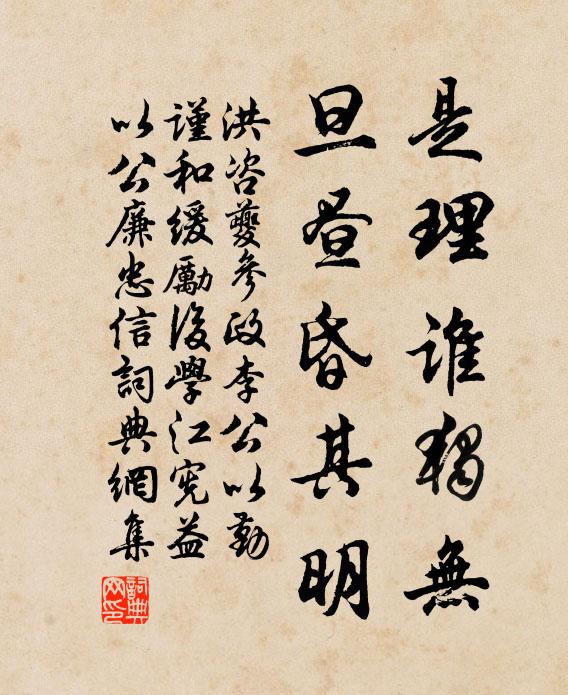 是理誰獨無
旦晝昏其明
洪咨夔參政李公以勤
謹和緩勵後學江憲益
以公廉忠信詞典網集
詞典網印